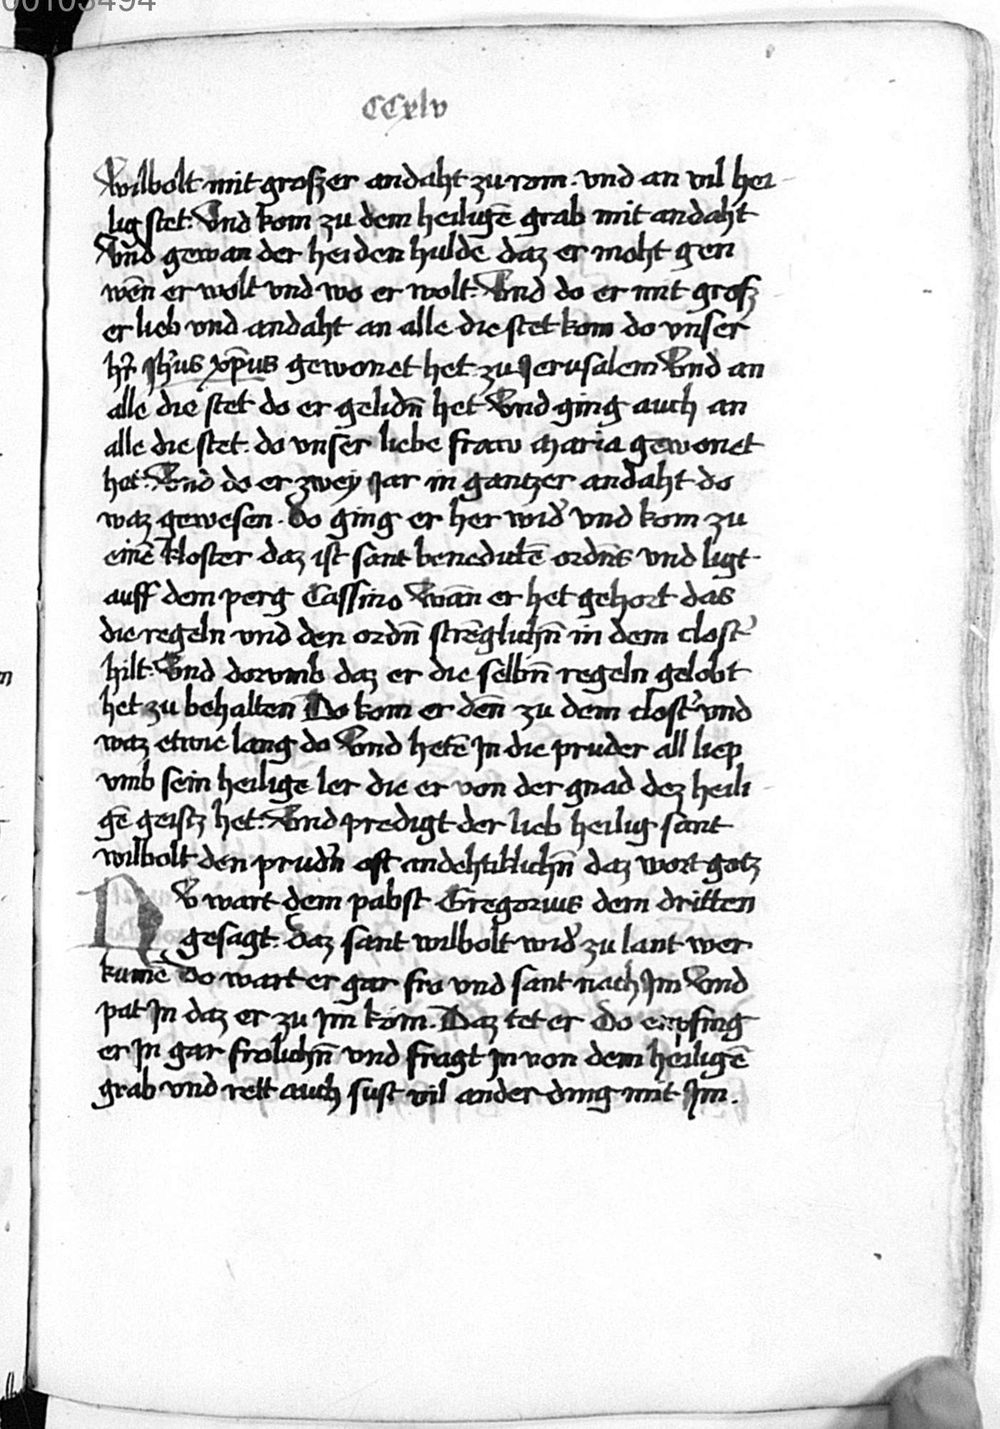 CCxlv
Wilbolt mit groszer andaht zu rom. vnd an vil hei-
lig stet. Vnd kom zu dem heiligē grab mit andaht
Vnd gewan der heiden huldē daz er moht gen
wēn er wolt vnd wo er wolt. Vnd do er mit grosz
er lieb vnd andaht an alle die stet kom do vnser
hr̄ Jh̄us xp̄us gewonet het zu Jerusalem Vnd an
alle die stet do er gelidn̄ het Vnd ging auch an
alle die stet. do vnser liebe fraw maria gewonet
het. Vnd do er zwey Jar in gantzer andaht do
waz gewesen. do ging er her wid' vnd kom zu
einē kloster daz ist sant benedictē ordn̄s vnd ligt
auff dem perg Cassino Wān er het gehort das
die regeln vnd den ordn̄ strēglichn̄ in dem clost'
hilt. Vnd dorvmb daz er die selbn̄ regeln gelobt
het zu behaltēn Do kom er dēn zu dem clost' vnd
waz etwie lang do Vnd hetē Jn die pruder all liep
vmb sein heilige ler die er von der gnad dez heili-
gē geistz het. Vnd predigt der lieb heilig sant
wilbolt den prud'n oft andehtiklichn̄ daz wort gotz
Do wart dem pabst Gregorius dem dritten
gesagt. daz sant wilbolt wid' zu lant wer
kumē Do wart er gar fro vnd sant nach Jm Vnd
pat Jn daz er zu Jm kom. Daz tet er Do empfing
er Jn gar frolichn̄ vnd fragt Jn von dem heiligē
grab vnd rett auch sust vil ander ding mit Jm.